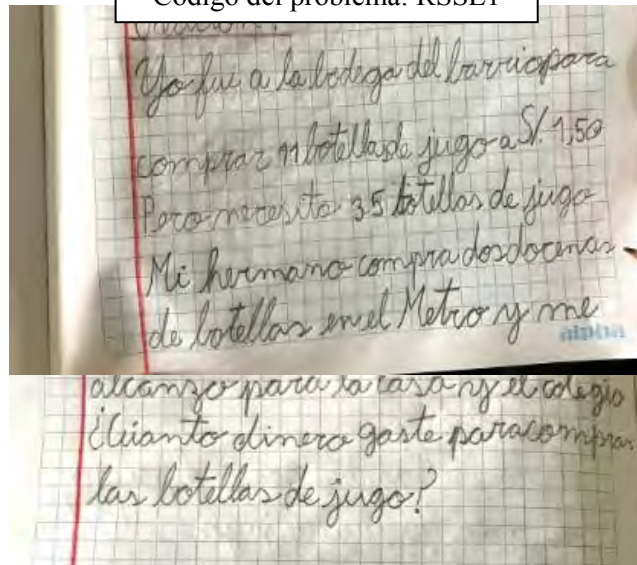 Código del problema: RSSL1
Creación:
Yo fui a la bodega del barrio para
comprar 11 botellas de jugo a S/. 1,50
Pero necesito 35 botellas de jugo
Mi hermano compra dos docenas
de botellas en el Metro y me
alpha
alcanzo para la casa y el colegio
¿Cuanto dinero gaste para comprar
las botellas de jugo?